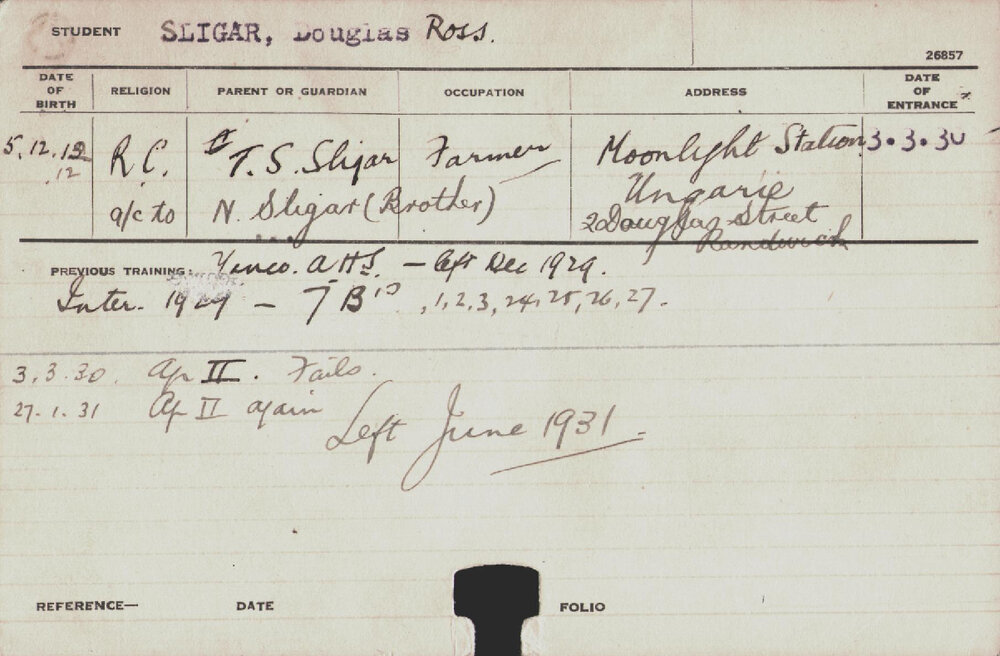 STUDENT SLIGAR, Douglas Ross.
26857
DATE OF BIRTH RELIGION PARENT OR GUARDIAN OCCUPATION ADDRESS DATE OF ENTRANCE
5.12.12 R.C. T.S. Sligar Farmer Moonlight Station 3.3.30
.12 Ungarie
a/c to N. Sligar (Brother) 20 Douglas Street
Randwick
PREVIOUS TRAINING: Yanco. A.H.S. – left Dec 1929.
Inter. 1929 – 7 B's , 1, 2, 3, 24, 25, 26, 27.
3.3.30. Ag II. Fails.
27.1.31 Ag II again
Left June 1931.
REFERENCE— DATE FOLIO